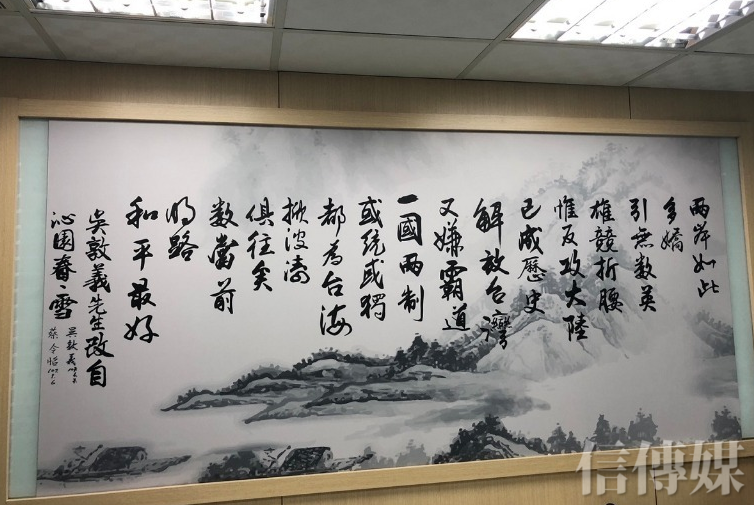 兩岸如此
多嬌
引無數英
雄競折腰
惟反攻大陸
已成歷史
解放台灣
又嫌霸道
一國兩制
或統或獨
都為台海
掀波濤
俱往矣
數當前
明路
和平最好
吳敦義先生改自
沁園春·雪
吳敦義
蔡令怡
信傳媒